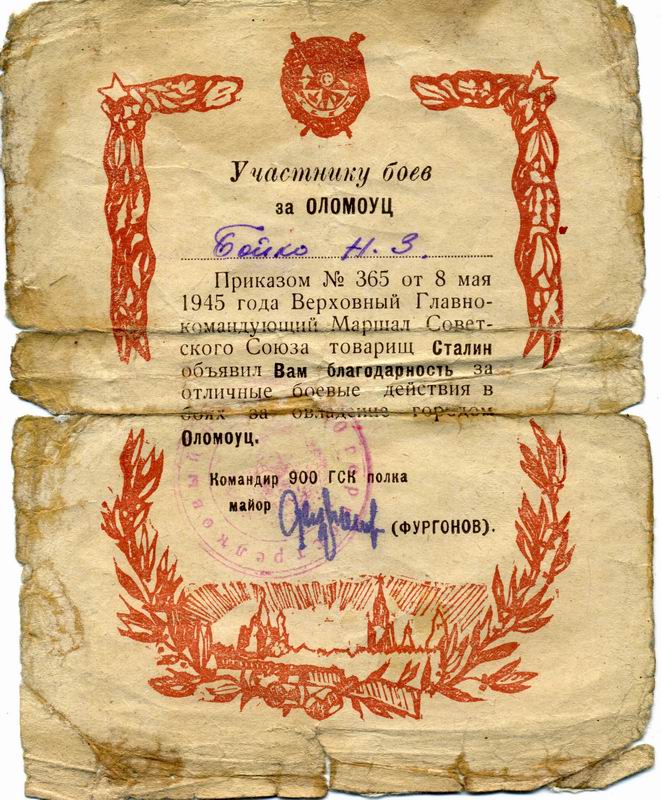 Участнику боев
за ОЛОМОУЦ
Бойко Н. З.
Приказом № 365 от 8 мая
1945 года Верховный Главно-
командующий Маршал Совет-
ского Союза товарищ Сталин
объявил Вам благодарность за
отличные боевые действия в
боях за овладение городом
Оломоуц.
Командир 900 ГСК полка
майор
(ФУРГОНОВ).